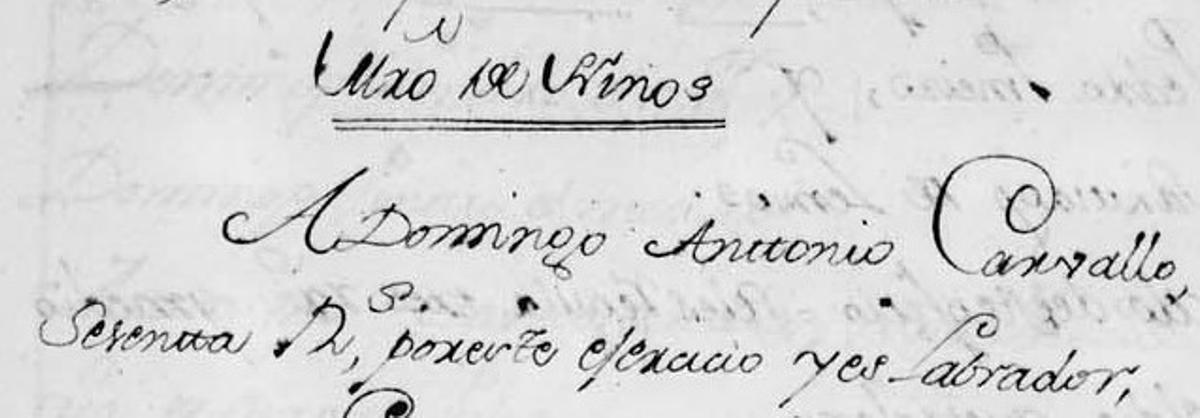 Mro de Niños
A Domingo Anttonio Carvallo,
Sesentta Rs, por este ejercicio y es Labrador,